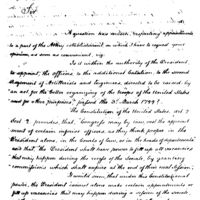 Sir
A question has arisen, respecting appointments
to a part of the Army establishment on which I have to request your
opinion, as soon as convenient.
Is it within the authority of the President
to appoint, the officers to the additional battalion to the second
Regiment of Artillerists and Engineers, directed to be raised by
"an act for the better organizing of the troops of the United States
and for other purposes" passed the 3d March 1799?
The Constitution of the United States art 2
Sect 2 provides that "Congress may by law vest the appoint
ment of certain inferior officers, as they think proper in the
President alone, in the Courts of law, or in the heads of departments"
and that "the President shall have power to fill up all vacancies
that may happen during the recess of the Senate, by granting
commissions which shall expire at the end of their next session."
It would seem, that under this Constitutional
power, the President cannot alone make certain appointments or
fill up vacancies that may happen during a recess of the Senate,